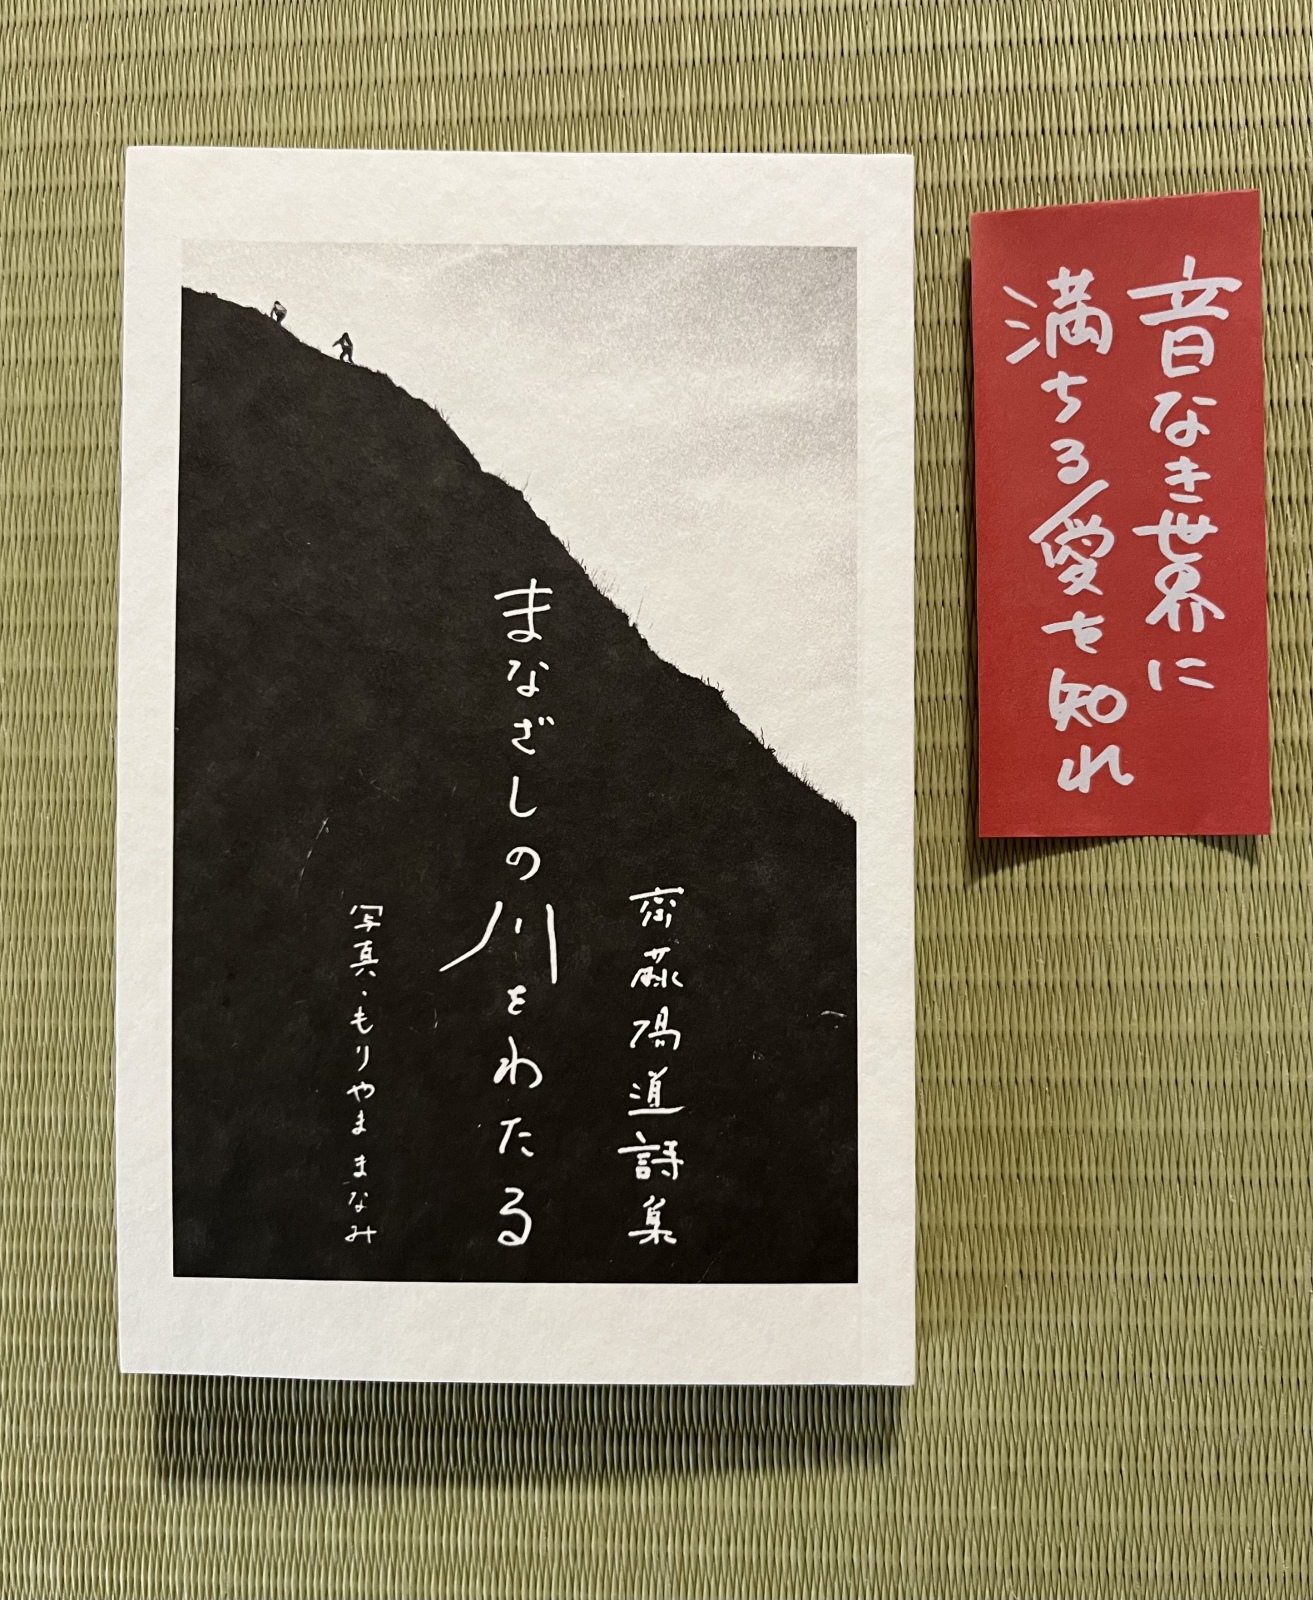 音なき世界に
満ちる愛を知れ
齋藤陽道詩集
まなざしの川をわたる
写真・もりやま まなみ